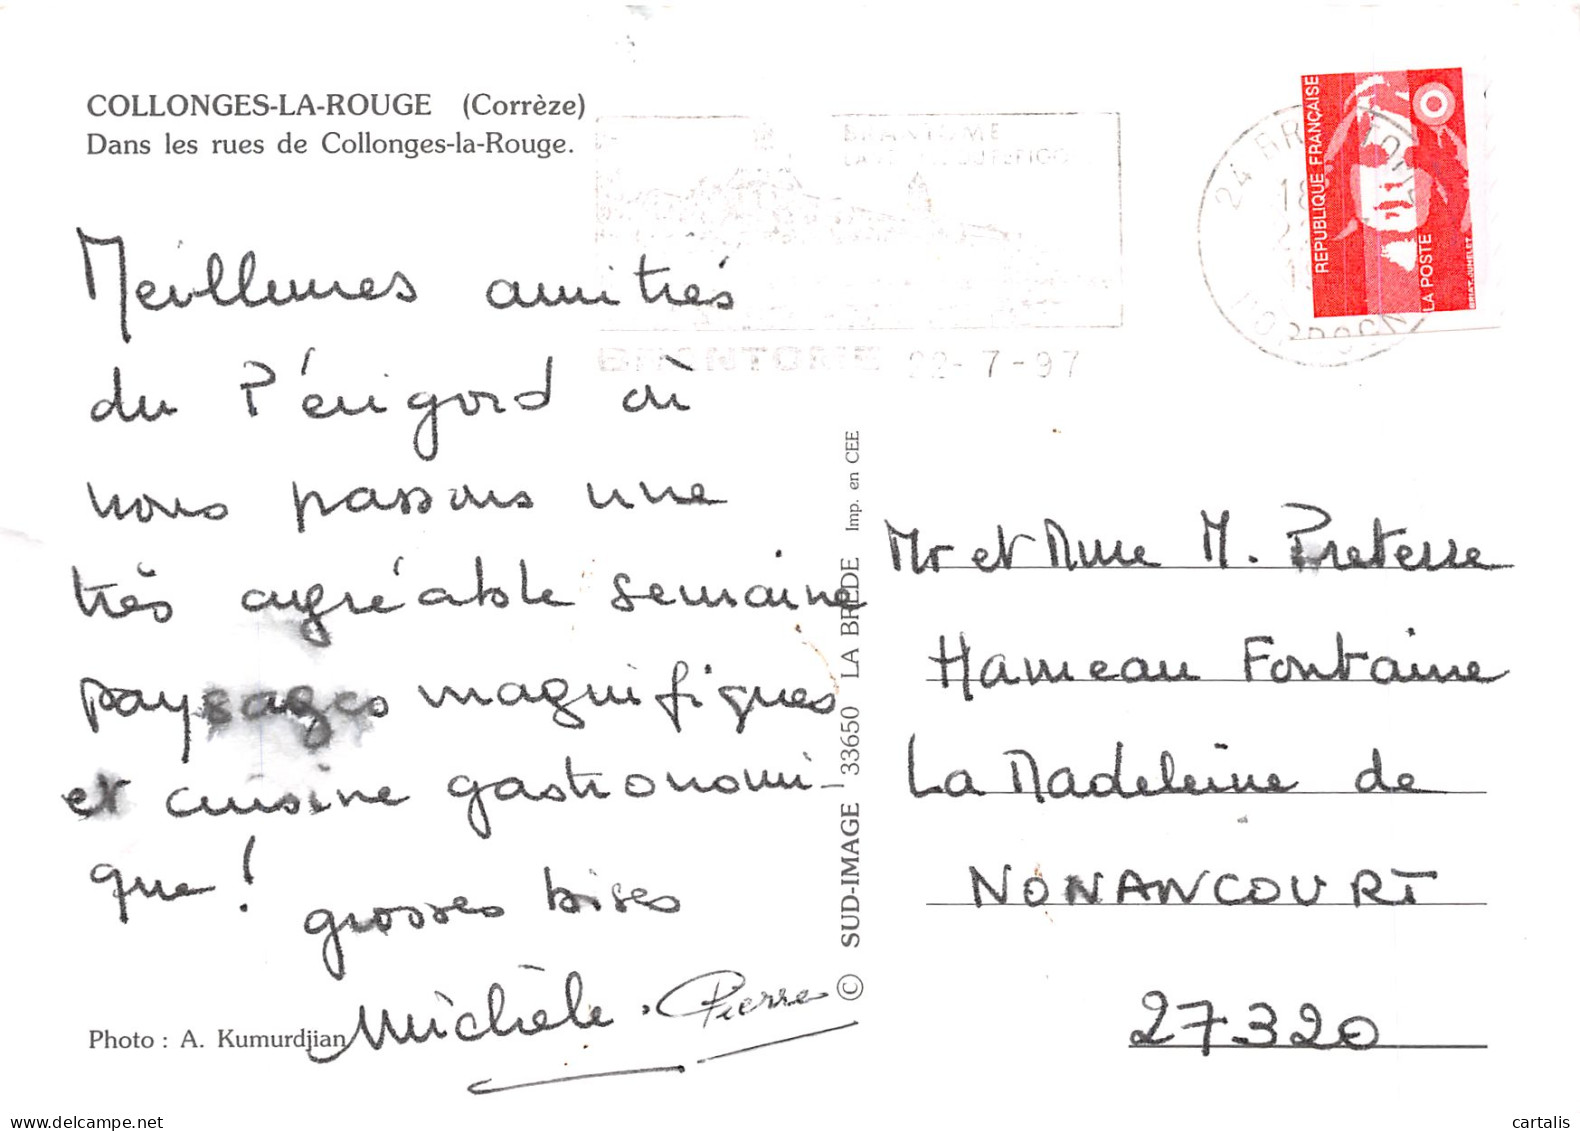 COLLONGES-LA-ROUGE (Corrèze)
Dans les rues de Collonges-la-Rouge.
BRANTOME
BRANTOME 22-7-97
24 BRANTOME
18
DORDOGNE
REPUBLIQUE FRANÇAISE
LA POSTE
BRIAT-JUMELET
Meilleures amitiés
du Périgord où
nous passons une
très agréable semaine
paysages magnifiques
et cuisine gastronomi-
que !
grosses bises
Michèle. Pierre
Photo : A. Kumurdjian
© SUD-IMAGE - 33650 LA BRÈDE Imp. en CEE
Mr et Mme M. Pretesse
Hameau Fontaine
La Madeleine de
NONANCOURT
27320
delcampe.net
cartalis